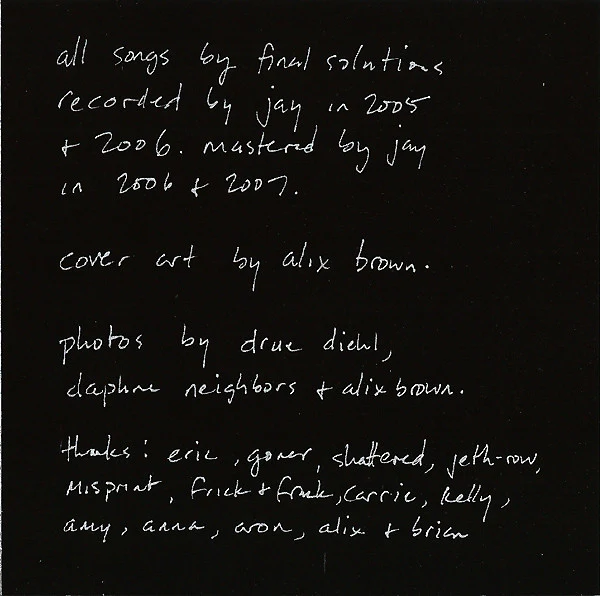 all songs by final solutions
recorded by jay in 2005
+ 2006. mastered by jay
in 2006 + 2007.
cover art by alix brown.
photos by drue diehl,
daphne neighbors + alix brown.
thanks: eric, goner, shattered, jeth-row,
misprint, frick + frack, carrie, kelly,
amy, anna, aron, alix + brian